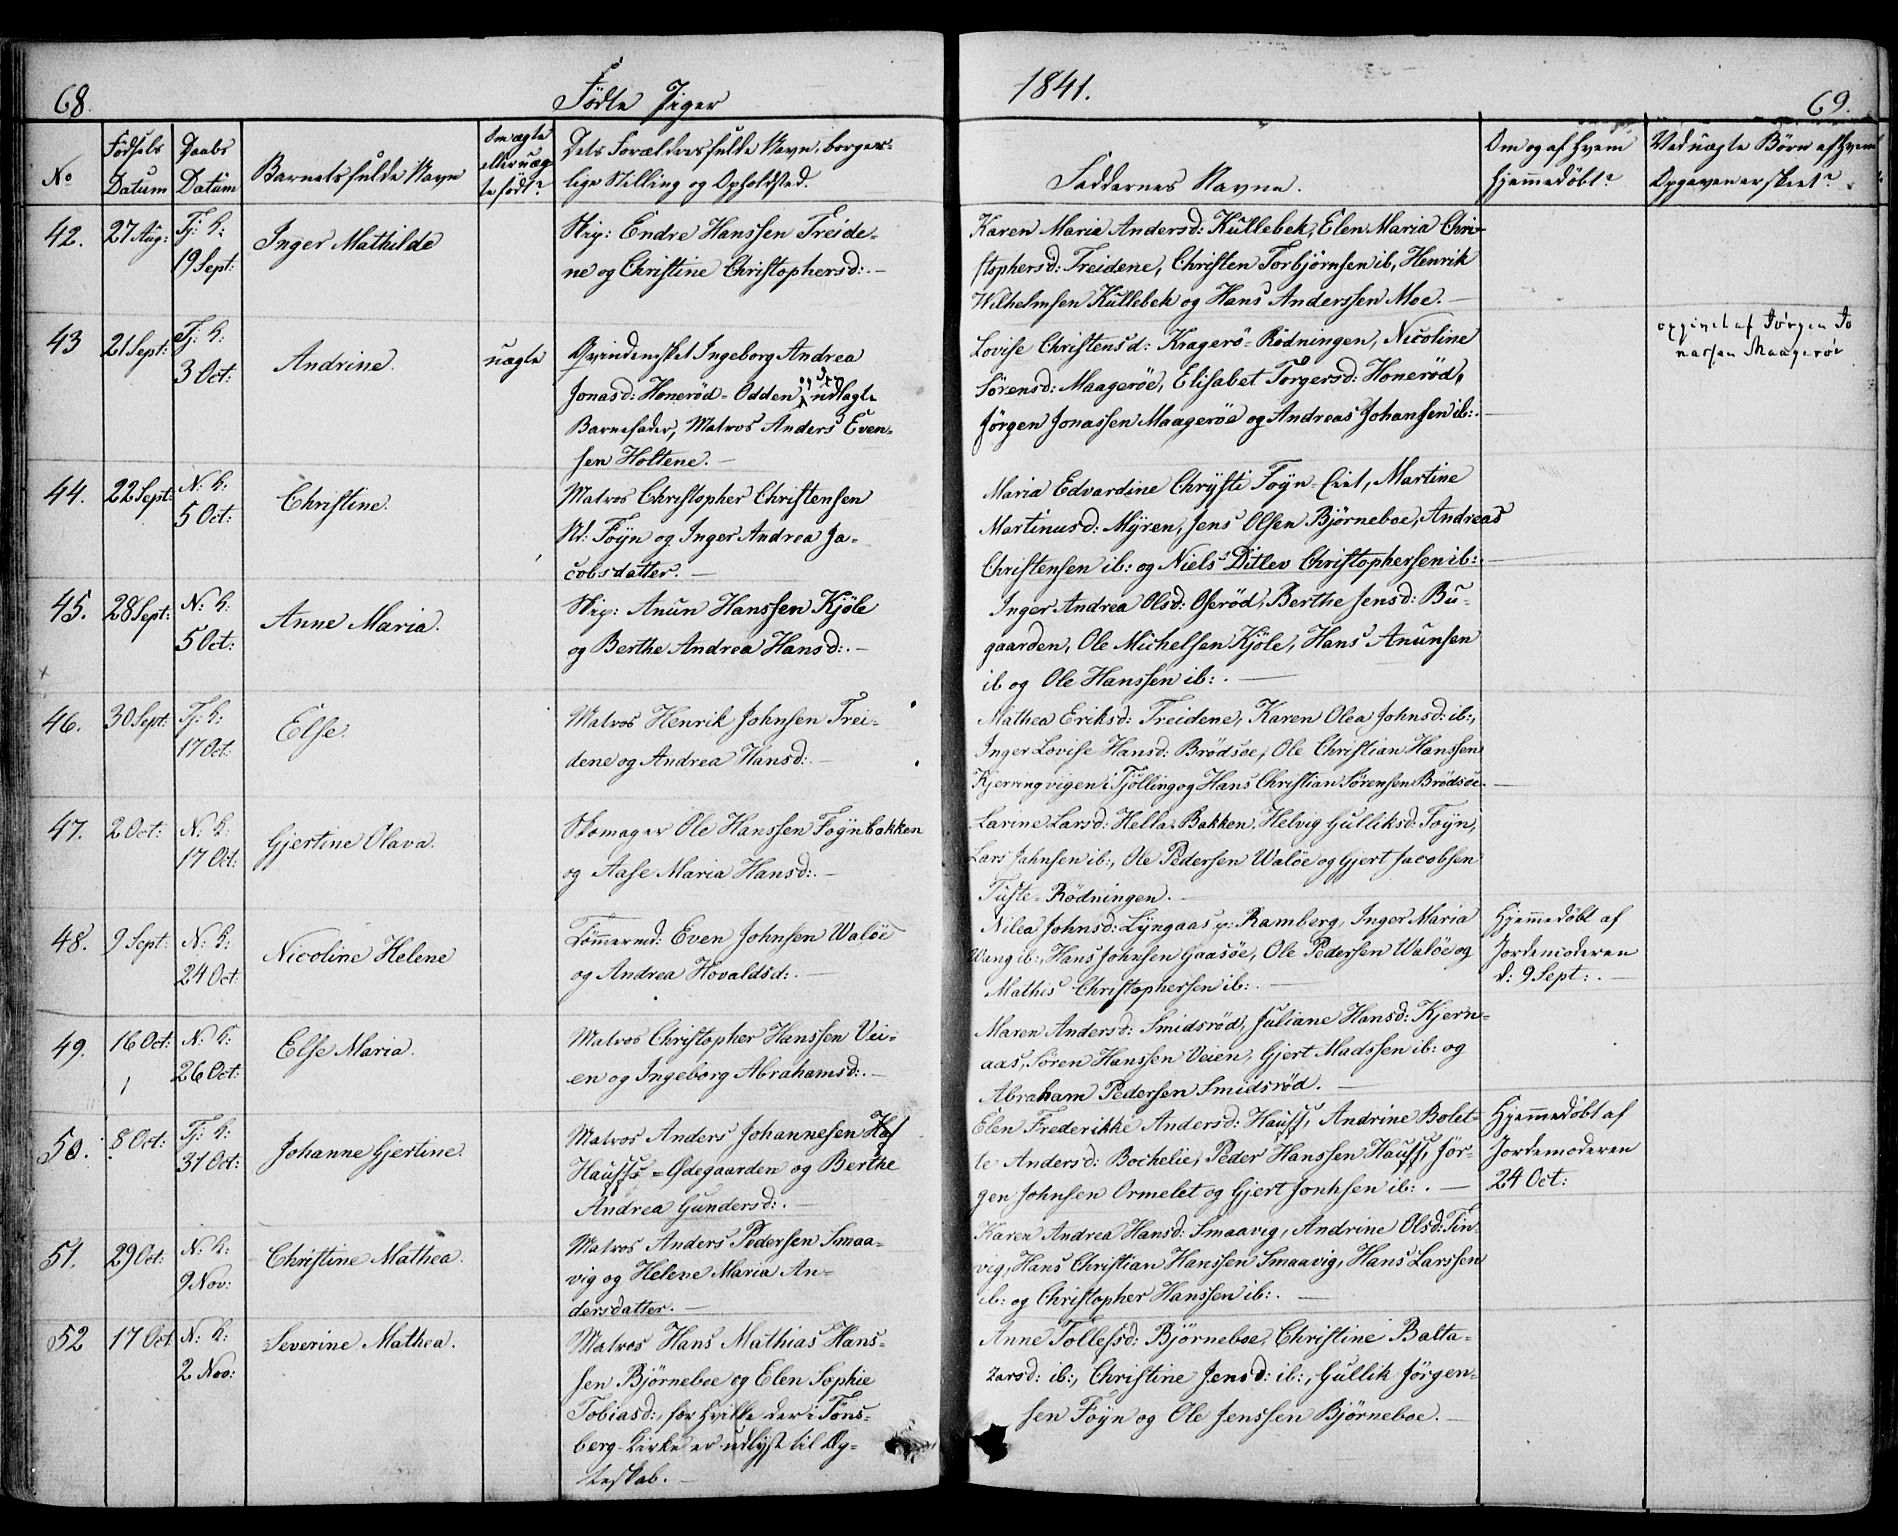 68.
Fødte Piger
1841.
69.
No
Fødsels Datum
Daabs Datum
Barnets fulde Navn
Om ægte eller uægte født?
Dets Forældres fulde Navn, borgerlige Stilling og Opholdsted.
Faddernes Navne.
Om og af hvem hjemmedøbt?
Ved uægte Børn af hvem Opgaven er skeet?
42.
27 Aug:
Tj: K:
19 Sept:
Inger Mathilde
Skip: Endre Hanssen Treide-
ne og Christine Christophersd: —
Karen Maria Andersd: Kullebek, Elen Maria Chri-
stophersd: Treidene, Christen Torbjørnsen ib, Henrik
Wilhelmsen Kullebek og Hans Anderssen Moe. —
43
21 Sept:
Tj: K:
3 Oct:
Andrine.
uægte
Qvindemsket Ingeborg Andrea
Jonasd: Honerød-Odden og den udlagte
Barnefader, Matros Anders Even-
sen Holtene. —
Lovise Christensd: Kragerö-Rödningen, Nicoline
Sörensd: Maagerøe, Elisabet Torgersd: Honeröd,
Jørgen Jonassen Maagerøe og Andreas Johansen ib: —
opgivet af Jørgen Jo
nassen Maagerøe
44.
22 Sept:
N: K:
5 Oct:
Christine.
Matros Christopher Christensen
N: Föyn og Inger Andrea Ja-
cobsdatter. —
Maria Edvardine Chrysti Föyn, Martine
Martinusd: Myren, Jens Olsen Björneboe, Andreas
Christensen ib: og Niels Ditlev Christophersen ib: —
45.
28 Sept:
N: K:
5 Oct:
Anne Maria.
Skip: Anun Hanssen Kjöle
og Berthe Andrea Hansd: —
Inger Andrea Olsd: Oseröd, Berthe Jensd: Bu-
gaarden, Ole Michelsen Kjöle, Hans Anunsen
ib og Ole Hanssen ib: —
46.
30 Sept:
Tj: K:
17 Oct:
Else.
Matros Henrik Johnsen Trei-
dene og Andrea Hansd: —
Mathea Eriksd: Treidene, Karen Olea Johnsd: ib:,
Inger Lovise Hansd: Brødsøe, Ole Christian Hanssen
Kjerringvigen i Tjölling og Hans Christian Sørensen Brødsøe —
47.
2 Oct:
N: K:
17 Oct:
Gjertine Olava.
Skomager Ole Hanssen Föynbakken
og Aase Maria Hansd: —
Larine Larsd: Hella-Bakken, Helvig Gulliksd: Föyn,
Lars Jahnsen ib:, Ole Pedersen Waløe og Gjert Jacobsen
Tuste-Rödningen. —
48.
9 Sept:
N: K:
24 Oct:
Nicoline Helene
Tömmermd: Even Johnsen Waløe
og Andrea Hovaldsd: —
Nilea Johnsd: Lyngaas p: Ramberg, Inger Maria
Wang ib:, Hans Johnsen Gaasøe, Ole Pedersen Waløe og
Mathis Christophersen ib: —
Hjemmedøbt af
Jordemoderen
d: 9 Sept: —
49.
16 Oct:
N: K:
26 Oct:
Else Maria.
Matros Christopher Hanssen Vei-
en og Ingeborg Abrahamsd: —
Maren Andersd: Smidsrød, Juliane Hansd: Kjern-
aas, Søren Hanssen Veien, Gjert Madssen ib: og
Abraham Pedersen Smidsrød. —
50.
8 Oct:
Tj: K:
31 Oct:
Johanne Gjertine.
Matros Anders Johannesen Haf
Hauffs-Ødegaarden og Berthe
Andrea Gundersd: —
Elen Frederikke Andersd: Hauff, Andrine Bolet-
te Andersd: Bochelie, Peder Hanssen Hauff, Jør-
gen Johnsen Ormelet og Gjert Jonhsen ib: —
Hjemmedøbt af
Jordemoderen
24 Oct:
51.
29 Oct:
N: K:
9 Nov:
Christine Mathea.
Matros Anders Pedersen Smaa-
vig og Helene Maria An-
dersdatter. —
Karen Andrea Hansd: Smaavig, Andrine Olsd: Tin-
vig, Hans Christian Hanssen Smaavig, Hans Larssen
ib: og Christopher Hanssen ib: —
52
17 Oct
N: K:
2 Nov:
Severine Mathea.
Matros Hans Mathias Hans-
sen Björneboe og Elen Sophie
Tobiasd:, for hvilke der i Töns-
berg Kirke er udlyst til Æg-
teskab. —
Anne Tollefsd: Björneboe, Christine Balta-
zarsd: ib:, Christine Jensd: ib:, Gullik Jörgen-
sen Föyn og Ole Jenssen Björneboe. —